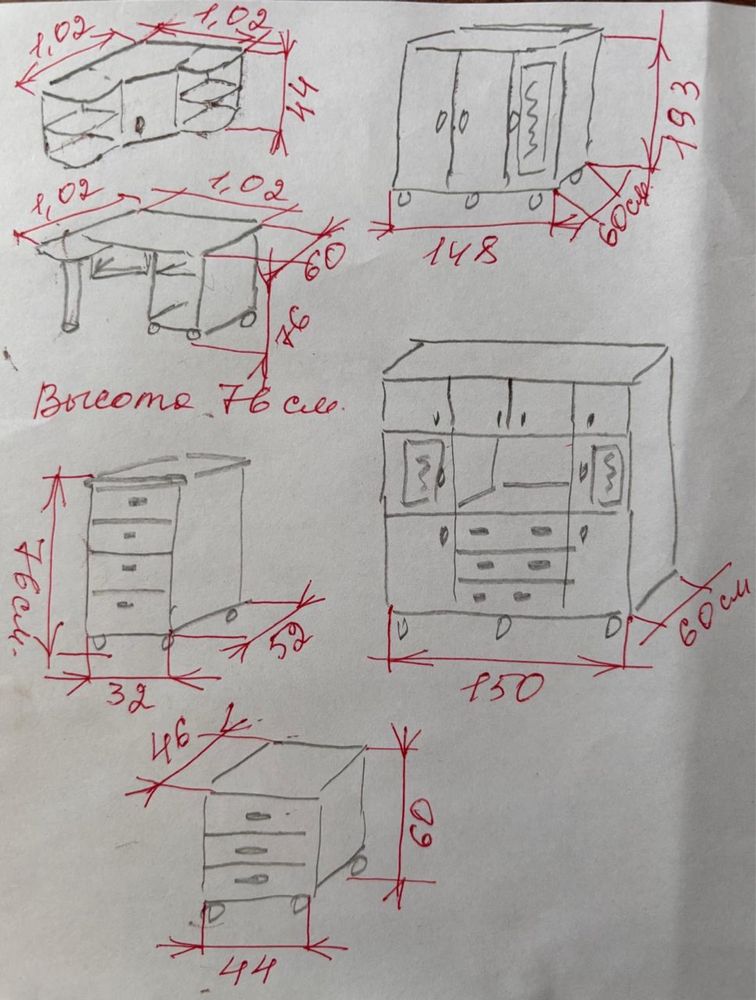 1,02
1,02
44
193
148
60см.
1,02
1,02
60
76
Высота 76 см.
76см.
32
52
150
60см
46
60
44